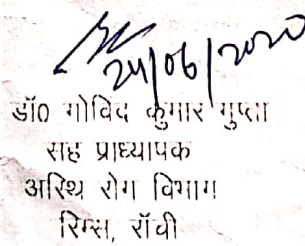 24/06/2020
डॉ0 गोविंद कुमार गुप्ता
सह प्राध्यापक
अस्थि रोग विभाग
रिम्स, राँची